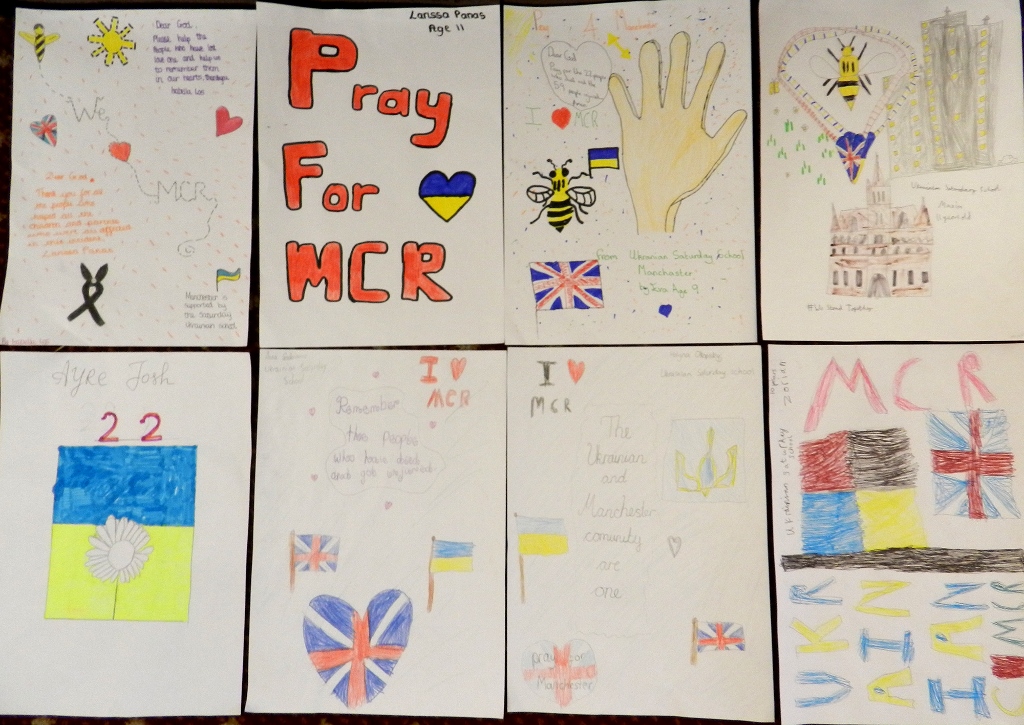 Dear God,
Please help the
people who have lost
love one and help us
to remember them
in our hearts.
Isabella Los
We
MCR
Dear God,
Thank you for all
the people who
helped all the
Manchester is
supported by
the Saturday
Ukrainian school
Larissa Panas
Age 11
Pray
For
MCR
Pray 4 Manchester
Dear God
Pray for the 22 people
59 people injured
I MCR
from Ukrainian Saturday School
Manchester
by Age 9
Ukrainian Saturday School
#We Stand Together
AYRE Josh
22
Ukrainian Saturday
School
I
MCR
Remember
the People
who have died
and got injured
Ukrainian Saturday School
I
MCR
The
Ukrainian
and
Manchester
comunity
are
one
pray for
Manchester
MCR
DORIAN
UKR
AIN
IAN
MCR